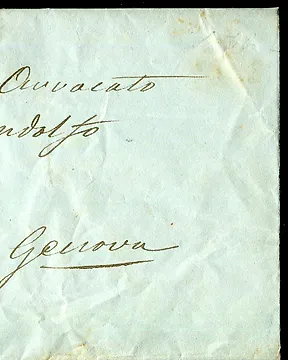 Avvocato
ndolfo
Genova